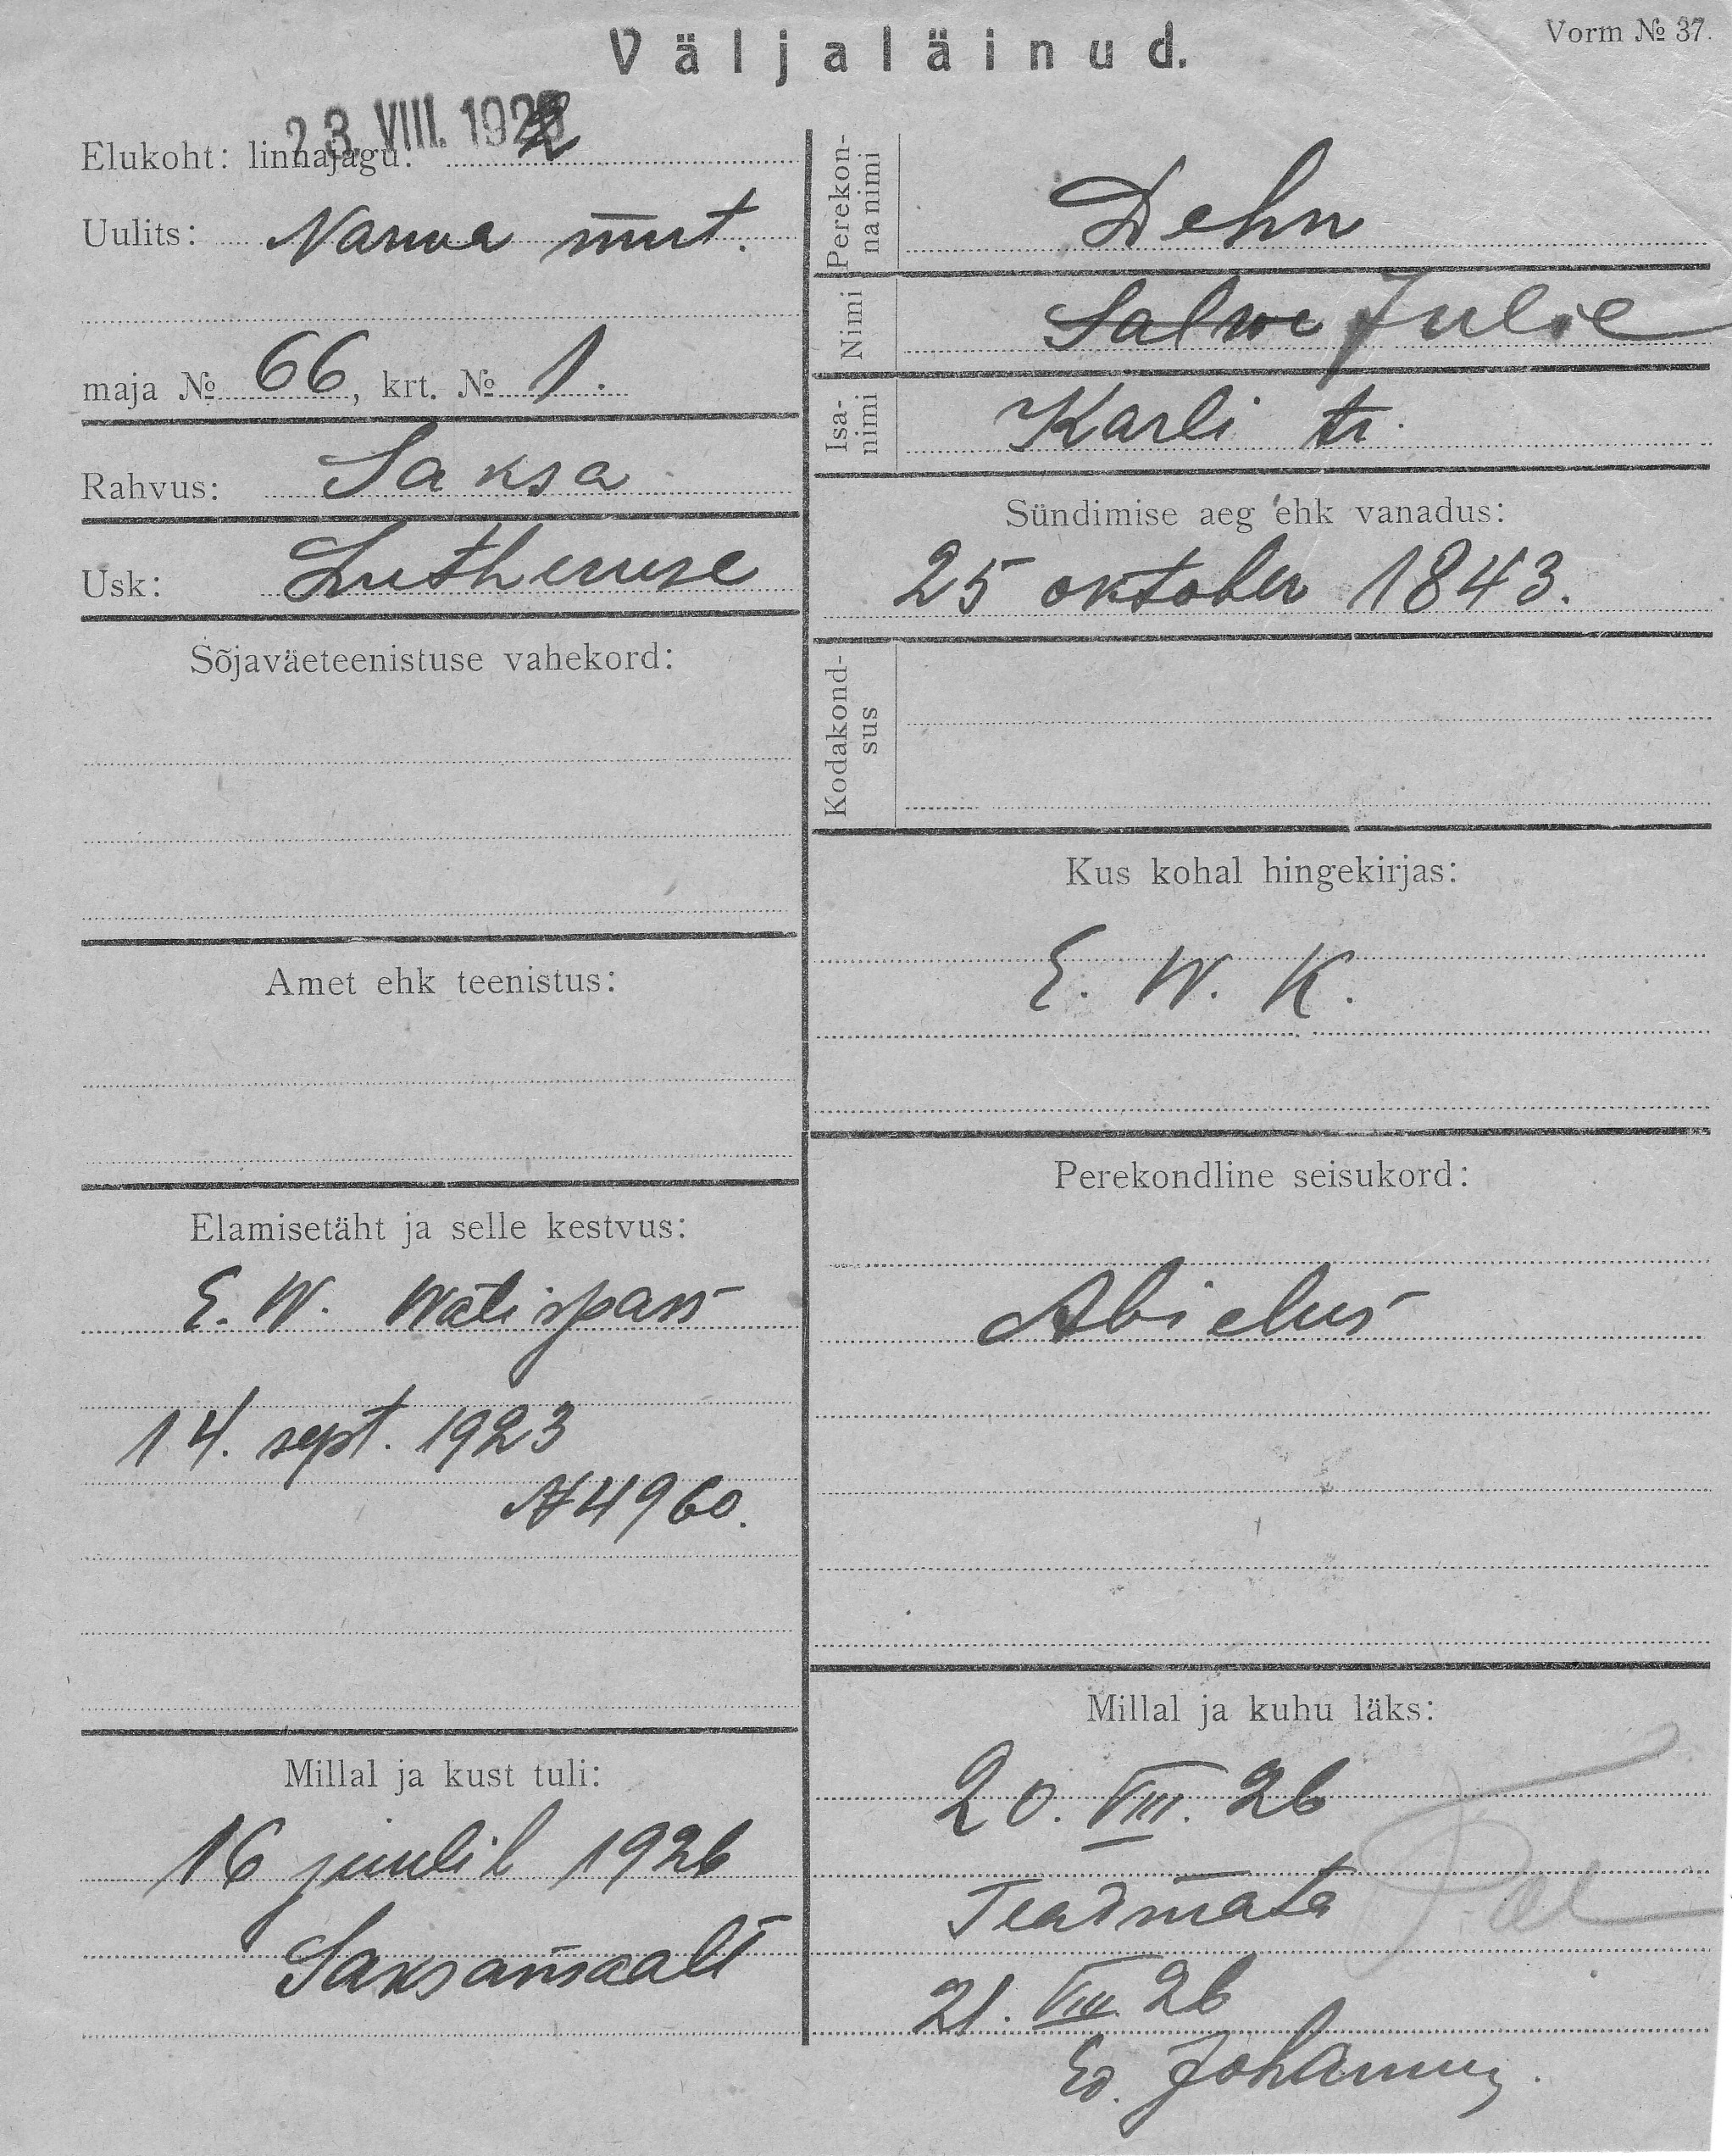 Väljaläinud.
Vorm № 37.
23. VIII. 192
Elukoht: linnajagu:
Uulits: Narva mnt.
maja № 66, krt. № 1.
Rahvus: Saksa
Usk: Lutheruse
Sõjaväeteenistuse vahekord:
Amet ehk teenistus:
Elamisetäht ja selle kestvus:
E. W. Välispass
14. sept. 1923
№ 4960.
Millal ja kust tuli:
16 juulil 1926
Saksamaalt
Perekon-
na nimi
Dehn
Nimi
Salme Julie
Isa-
nimi
Karli tr.
Sündimise aeg ehk vanadus:
25 oktober 1843.
Kodakond-
sus
Kus kohal hingekirjas:
E. W. K.
Perekondline seisukord:
Abielus
Millal ja kuhu läks:
20. VIII. 26
Teadmata
21. VIII 26
Ed. Johanning.